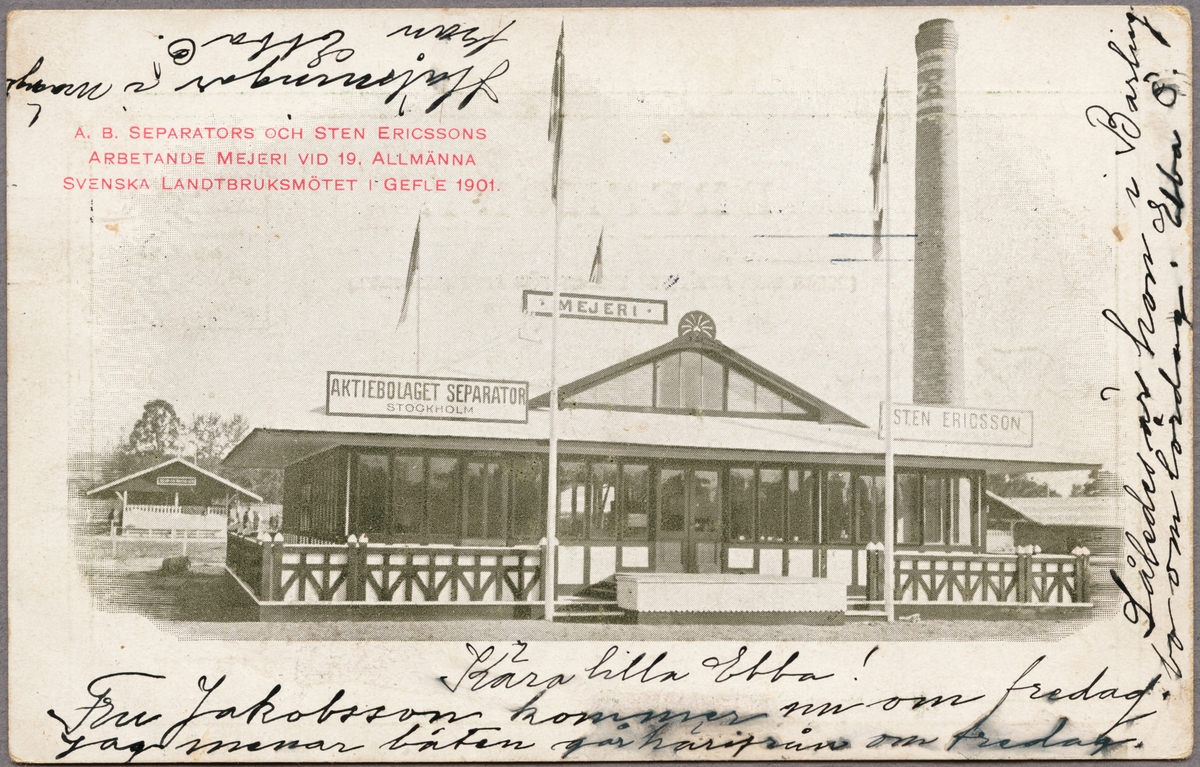 A. B. SEPARATORS OCH STEN ERICSSONS
ARBETANDE MEJERI VID 19. ALLMÄNNA
SVENSKA LANDTBRUKSMÖTET I GEFLE 1901.
MEJERI
AKTIEBOLAGET SEPARATOR
STOCKHOLM
STEN ERICSSON
Kära lilla Ebba!
Fru Jakobsson kommer nu om fredag.
jag menar båten går härifrån om fredag.
Således är hon i Barling
bo om lördag. Ebba Ö.
Helsningar i
från Ebba